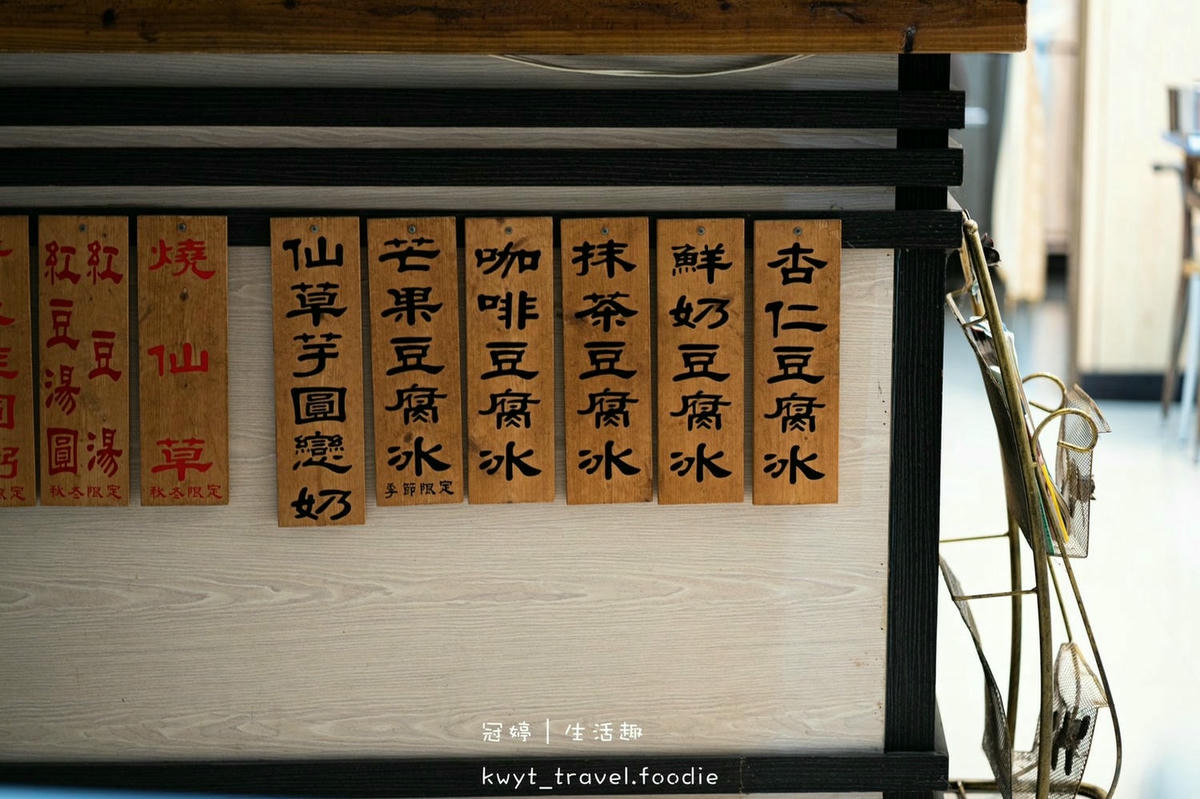 杏仁豆腐冰
鮮奶豆腐冰
抹茶豆腐冰
咖啡豆腐冰
芒果豆腐冰
季節限定
仙草芋圓戀奶
燒仙草
秋冬限定
紅豆湯
紅豆湯圓
秋冬限定
限定
冠婷｜生活趣
kwyt_travel.foodie